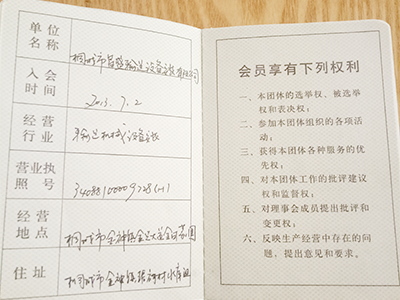 单位
名称
桐城市 输送设备 有限公司
入会
时间
2013.7.2
经营
行业
输送机械设备
营业执
照号
经营
地点
桐城市金神镇
住址
桐城市金神镇
会员享有下列权利
一、本团体的选举权、被选举
权和表决权;
二、参加本团体组织的各项活
动;
三、获得本团体各种服务的优
先权;
四、对本团体工作的批评建议
权和监督权;
五、对理事会成员提出批评和
变更权;
六、反映生产经营中存在的问
题,提出意见和要求。